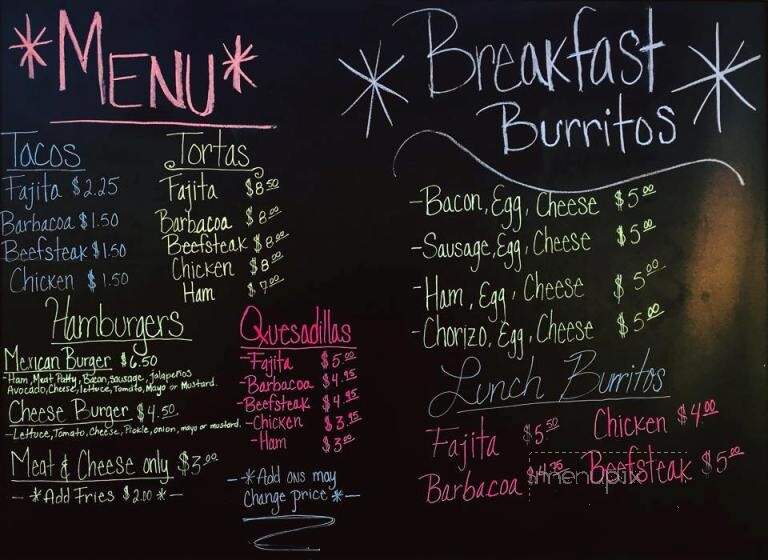 *MENU*
Tacos
Fajita $2.25
Barbacoa $1.50
Beefsteak $1.50
Chicken $1.50
Tortas
Fajita $8.50
Barbacoa $8.00
Beefsteak $8.00
Chicken $8.00
Ham $7.00
Hamburgers
Mexican Burger $6.50
-Ham, Meat Patty, Bacon, Sausage, Jalapeños
Avocado, Cheese, lettuce, Tomato, Mayo or Mustard.
Cheese Burger $4.50
-Lettuce, Tomato, Cheese, Pickle, onion, mayo or mustard.
Meat & Cheese only $3.00
-*Add Fries $2.00*-
Quesadillas
-Fajita $5.00
-Barbacoa $4.95
-Beefsteak $4.95
-Chicken $3.95
-Ham $3.00
-*Add ons may
change price*-
*Breakfast
Burritos*
-Bacon, Egg, Cheese $5.00
-Sausage, Egg, Cheese $5.00
-Ham, Egg, Cheese $5.00
-Chorizo, Egg, Cheese $5.00
Lunch Burritos
Fajita $5.50
Chicken $4.00
Barbacoa $4.95
Beefsteak $5.00
menupix